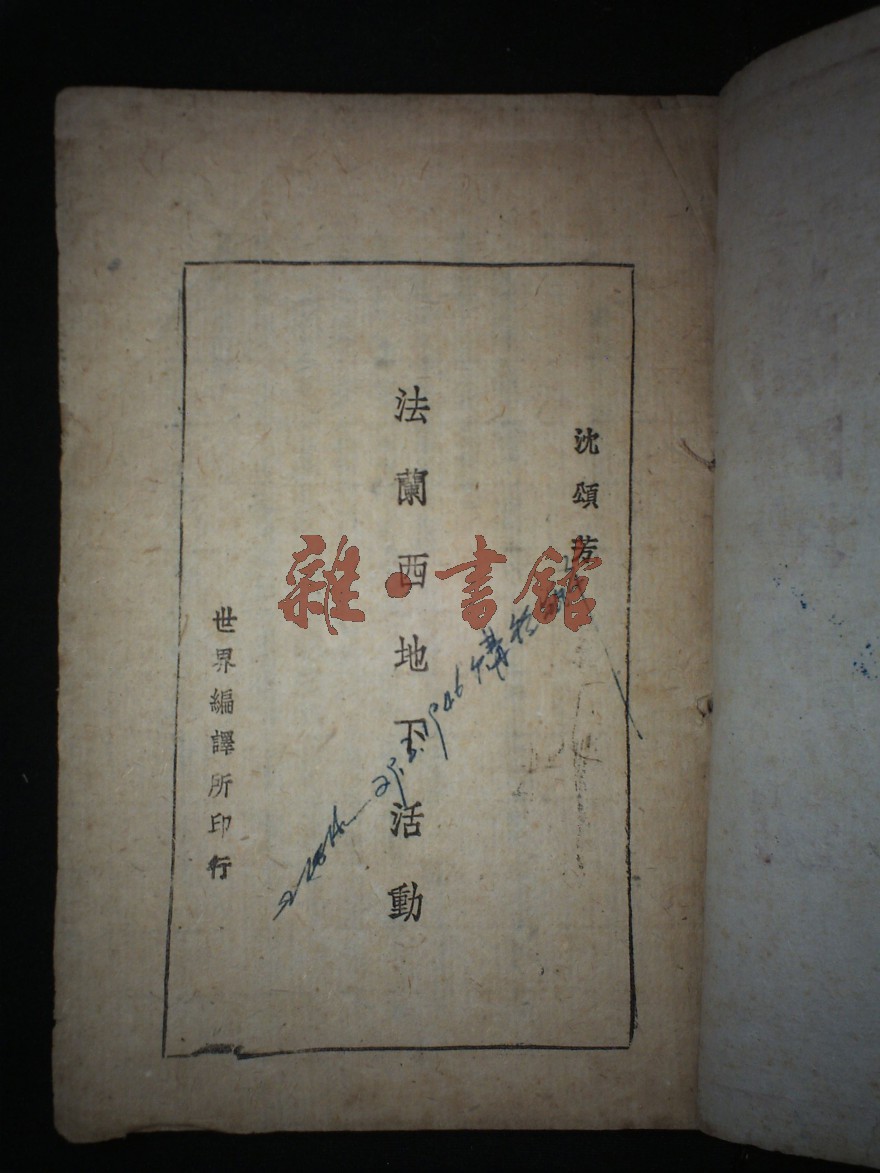 沈頌芳
法蘭西地下活動
世界編譯所印行
雜·書館